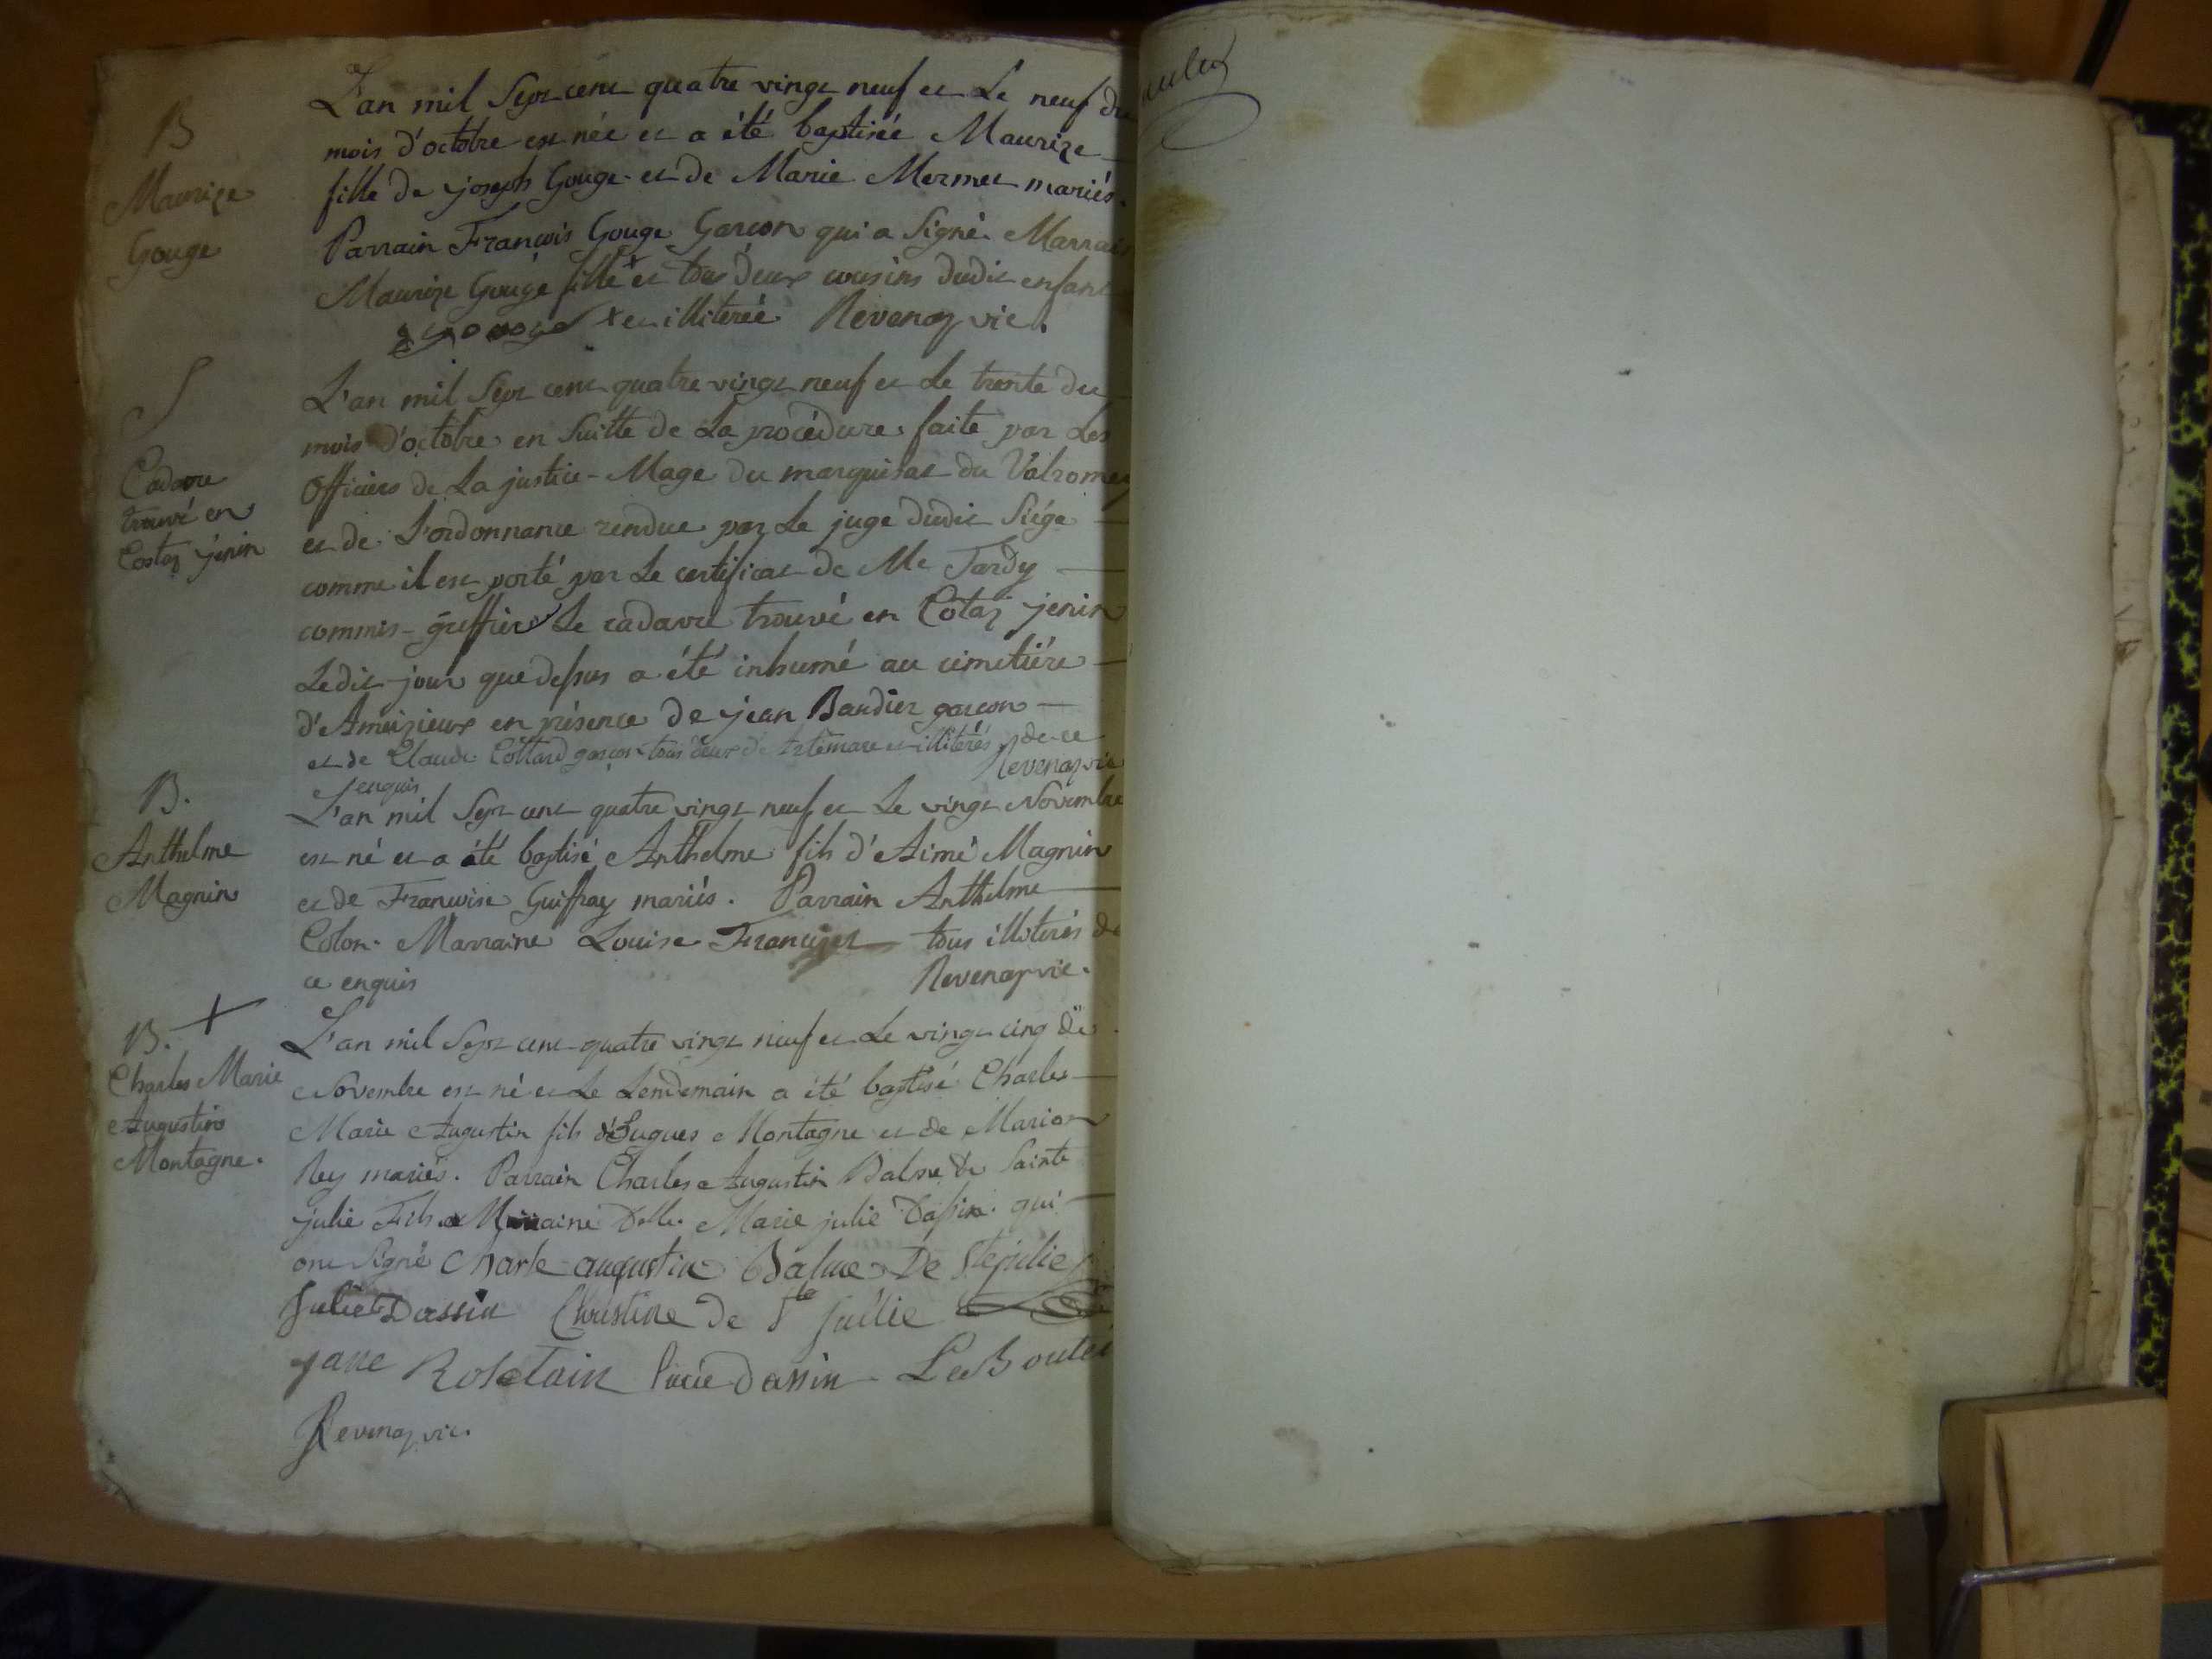 B
Maurize
Gouge
L'an mil Sept cent quatre vingt neuf et Le neuf du
mois d'octobre est née et a été baptisée Maurize
fille de joseph Gouge et de Marie Mermet mariés.
Parrain François Gouge Garcon qui a Signé. Marraine
Maurize Gouge fille + et tous deux cousins dudit enfant
+ et illiterée Revenaz vic.
S
Cadavre
trouvé en
Costaz jenin
L'an mil Sept cent quatre vingt neuf et Le trente du
mois d'octobre en Suitte de La procédure faite par Les
Officiers de La justice-Mage du marquisat du Valromey
et de L'ordonnance rendue par Le juge dudit Siége
comme il est porté par Le certificat de Me Tardy
commis-greffier Le cadavre trouvé en Cotaz jenin
Ledit jour que dessus a été inhumé au cimetiére
d'Ameizieux en présence de jean Baudier garcon
et de Claude Cottard garçon tous deux d'Artemare et illiterés de ce
enquis Revenaz vic
B.
Anthelme
Magnin
L'an mil Sept cent quatre vingt neuf et Le vingt Novembre
est né et a été baptisé Anthelme fils d'Aimé Magnin
et de Francoise Guiffray mariés. Parrain Anthelme
Colon. Marraine Louise Francizet tous illiterés de
ce enquis Revenaz vic.
B. +
Charles Marie
Augustin
Montagne.
L'an mil Sept cent quatre vingt neuf et Le vingt cinq du
Novembre est né et Le Lendemain a été baptisé Charles
Marie Augustin fils d'Hugues Montagne et de Marion
Rey mariés. Parrain Charles Augustin Balme de Sainte
julie Fils Marraine Delle. Marie julie Dassin qui
ont Signé Charle augustin Balme De Ste julie
julie Dassin Christine de Ste jullie
jane Rostain lucie Dassin Le Boulet
Revenaz vic.